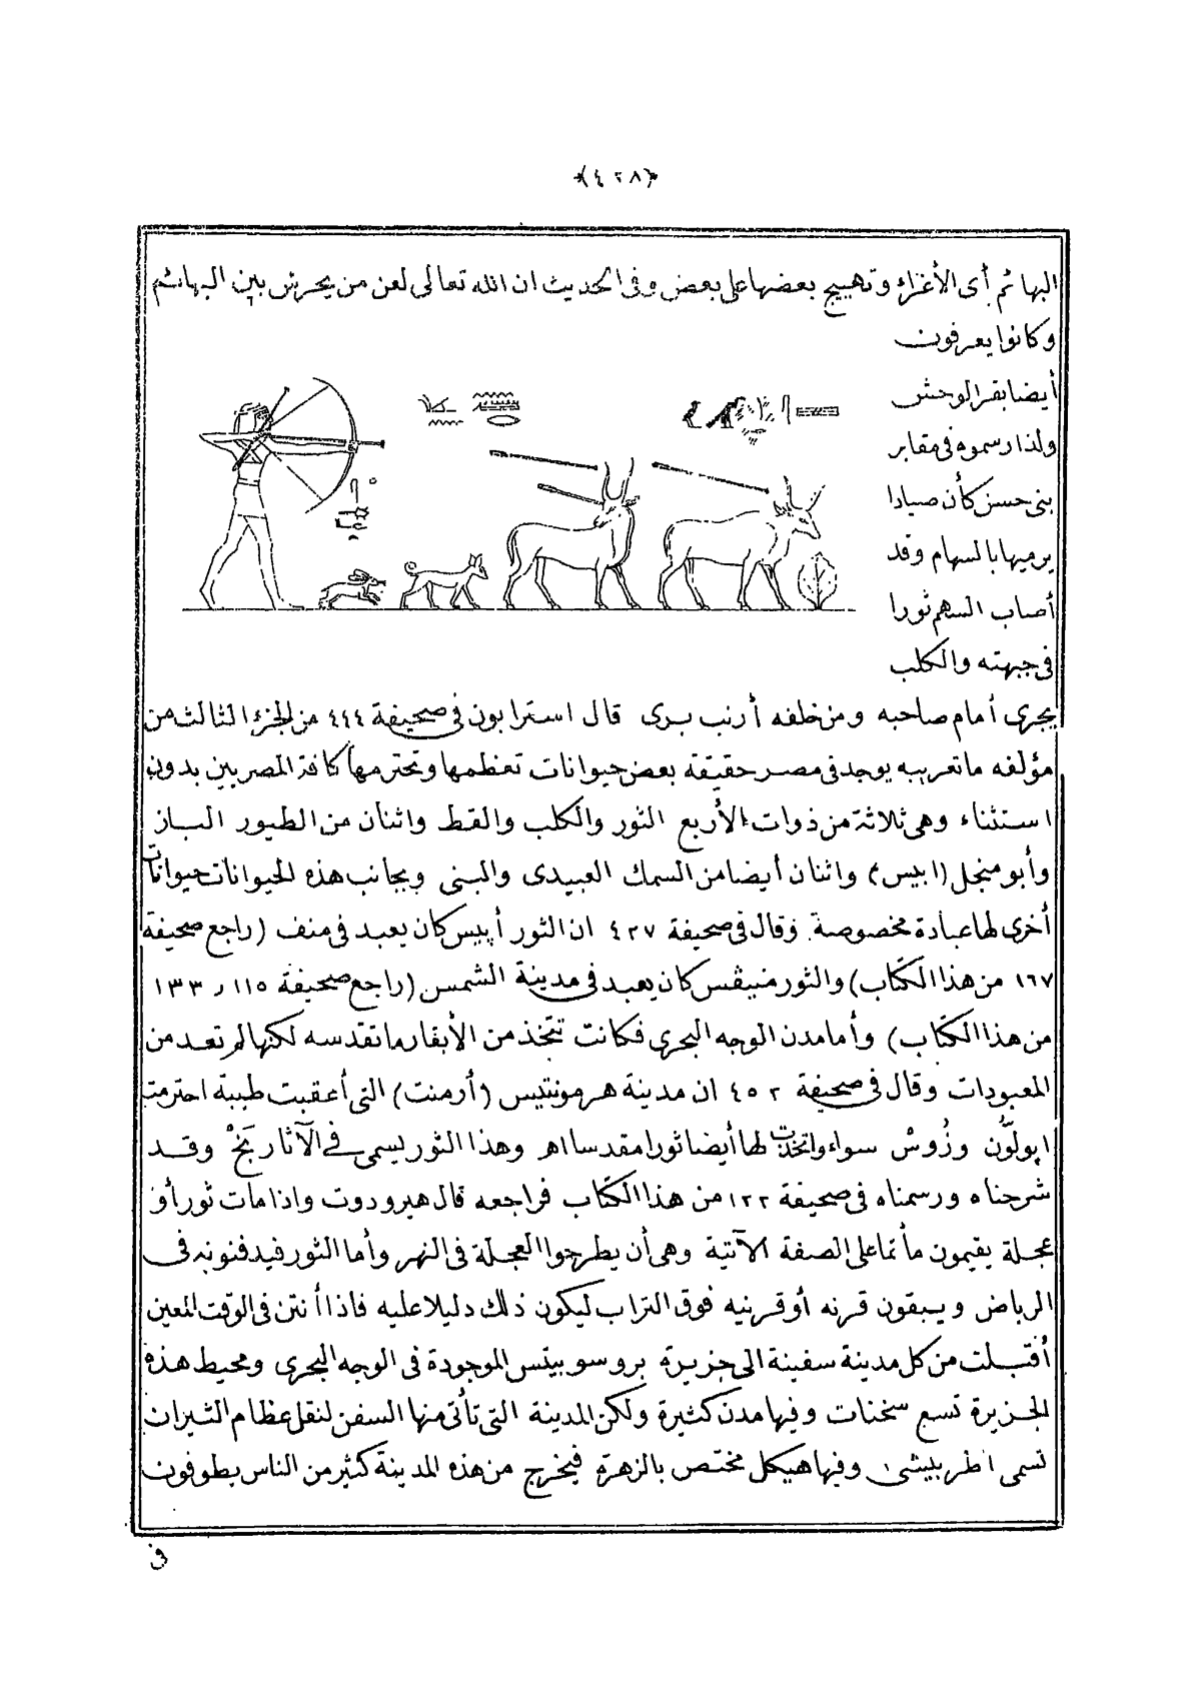 ﴿٤٢٨﴾
البهائم أى الأغراء وتهييج بعضها على بعض وفى الحديث ان الله تعالى لعن من يحرش بين البهائم
وكانوا يعرفون
أيضا بقر الوحش
ولذا رسموه فى مقابر
بنى حسن كأن صيادا
يرميها بالسهام وقد
أصاب السهم ثورا
فى جبهته والكلب
يجرى أمام صاحبه ومن خلفه أرنب برى قال استرابون فى صحيفة ٤٤٤ من الجزء الثالث من
مؤلفه ما تعريبه يوجد فى مصر حقيقة بعض حيوانات تعظمها وتحترمها كافة المصريين بدون
استثناء وهى ثلاثة من ذوات الأربع الثور والكلب والقط واثنان من الطيور الباز
وأبو منجل (ابيس) واثنان أيضا من السمك العبيدى والبنى وبجانب هذه الحيوانات حيوانات
أخرى لها عبادة مخصوصة وقال فى صحيفة ٤٢٧ ان الثور أپيس كان يعبد فى منف (راجع صحيفة
١٦٧ من هذا الكتاب) والثور منيڤس كان يعبد فى مدينة الشمس (راجع صحيفة ١١٥ و ١٣٣
من هذا الكتاب) وأما مدن الوجه البحرى فكانت تتخذ من الأبقار ما تقدسه لكنها لم تعد من
المعبودات وقال فى صحيفة ٤٥٢ ان مدينة هرمونتيس (أرمنت) التى أعقبت طيبة احترمت
اپولون وزُوسْ سواء واتخذت لها أيضا ثورا مقدسا اهـ وهذا الثور يسمى فى الآثار بَخْ وقد
شرحناه ورسمناه فى صحيفة ١٢٢ من هذا الكتاب فراجعه قال هيرودوت واذا مات ثور أو
عجلة يقيمون مأتما على الصفة الآتية وهى أن يطرحوا العجلة فى النهر وأما الثور فيدفنونه فى
الرباض ويبقون قرنه أو قرنيه فوق التراب ليكون ذلك دليلا عليه فاذا أنتن فى الوقت المعين
أقبلت من كل مدينة سفينة الى جزيرة بروسوبيتس الموجودة فى الوجه البحرى ومحيط هذه
الجزيرة تسع سخنات وفيها مدن كثيرة ولكن المدينة التى تأتى منها السفن لنقل عظام الثيران
تسمى اطربيشى وفيها هيكل مختص بالزهرة فيخرج من هذه المدينة كثير من الناس يطوفون
فى